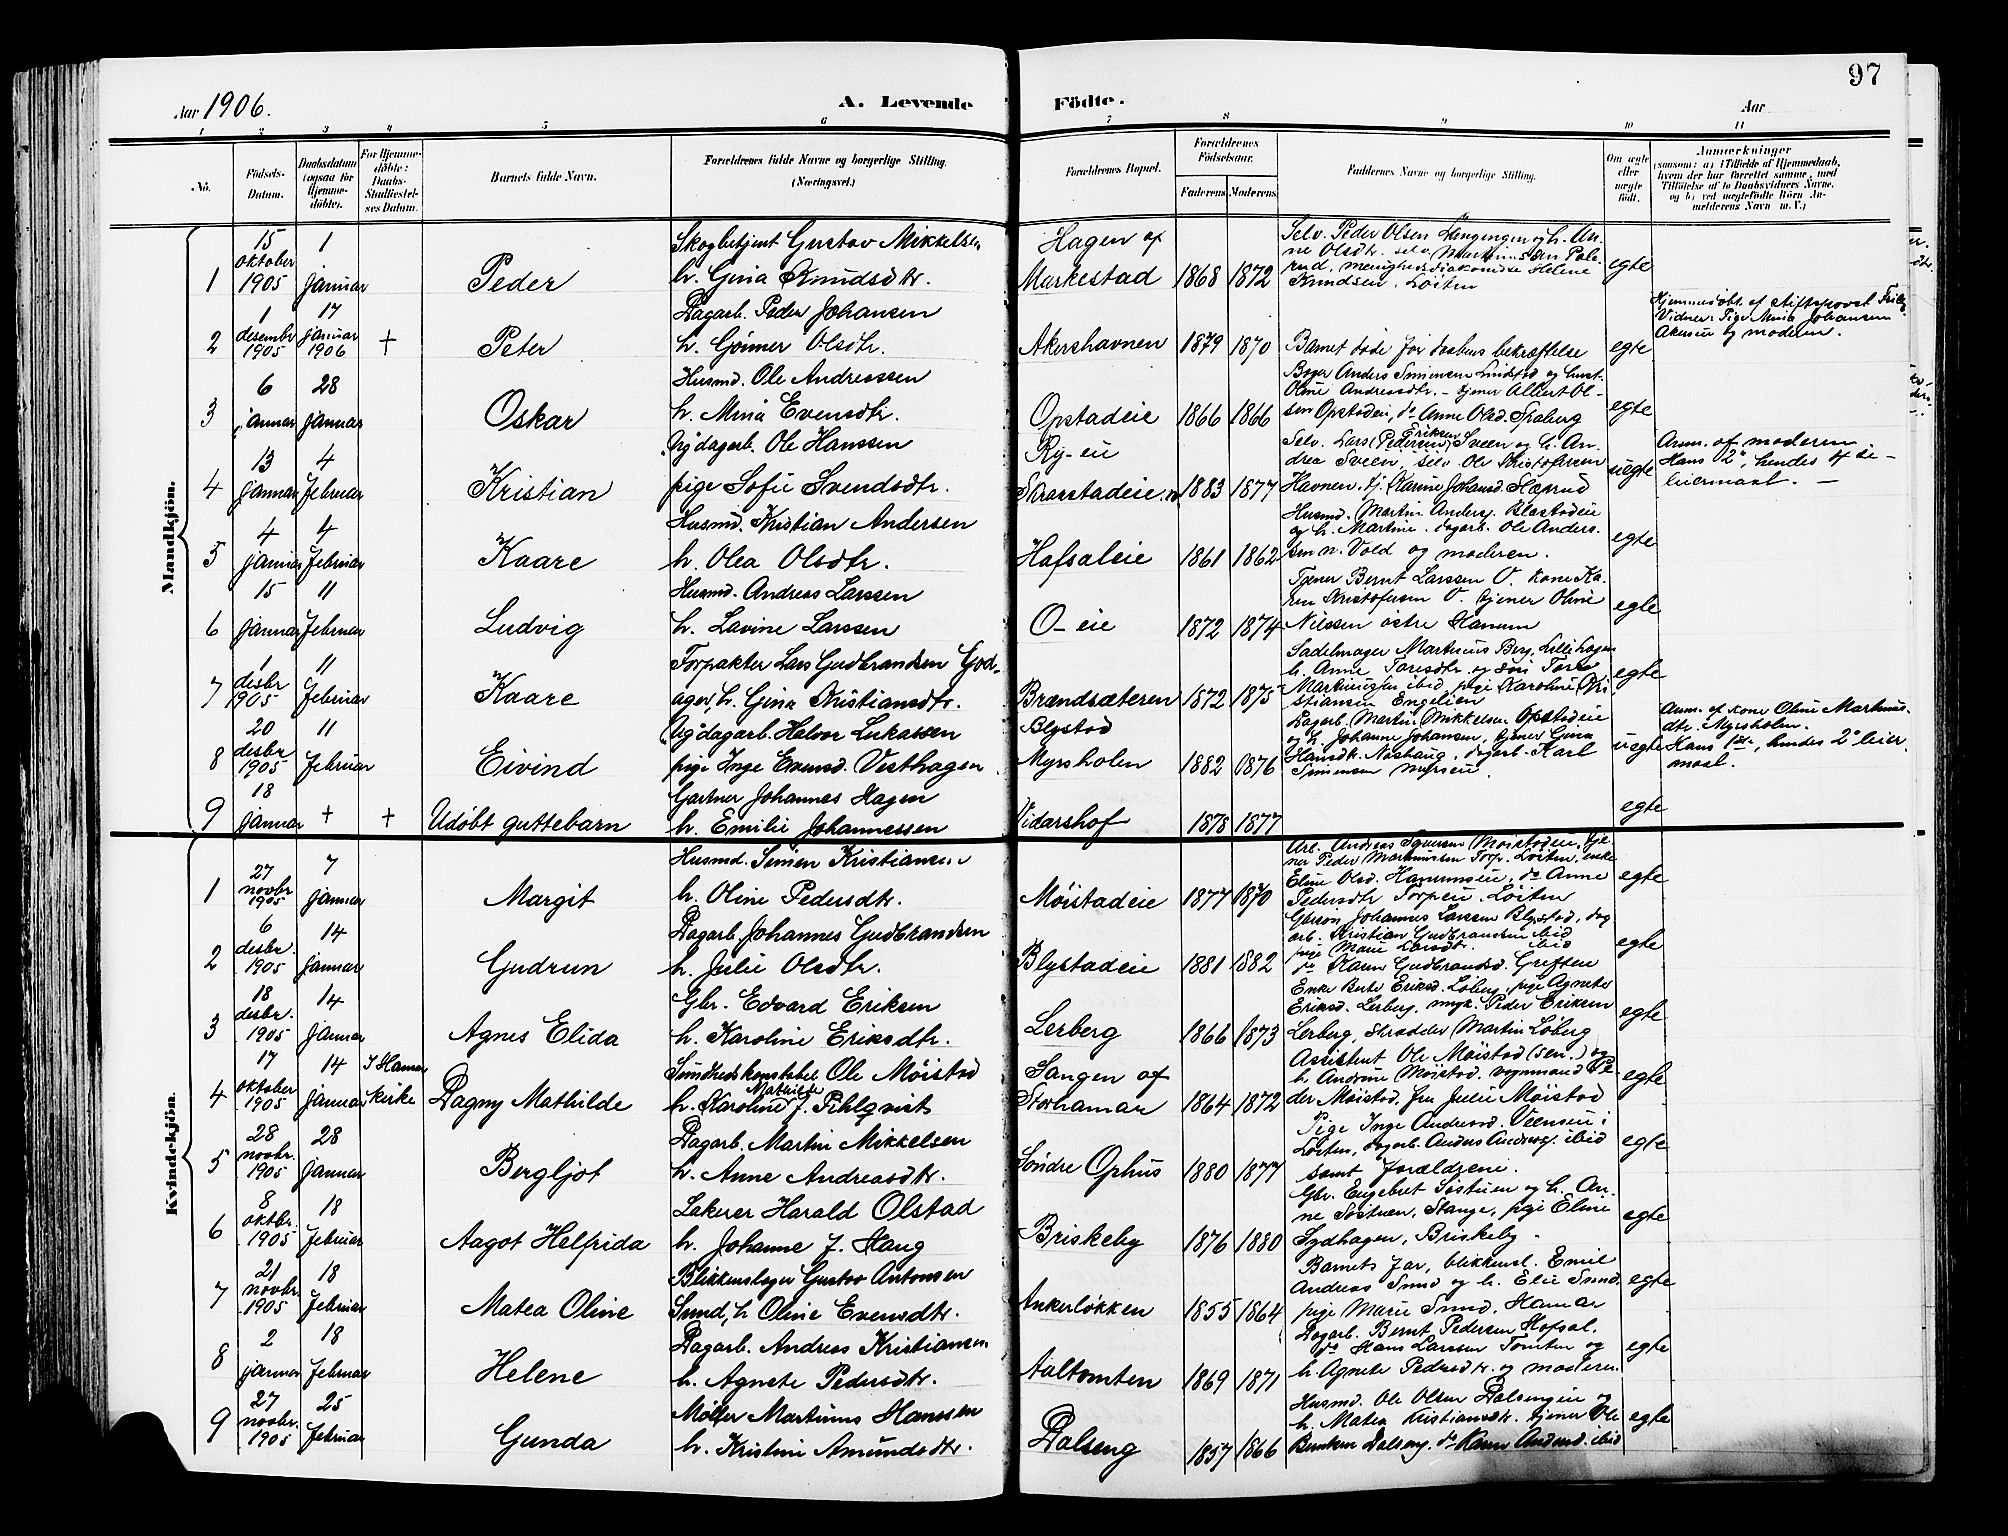 97
Aar 1906. A. Levende Födte. Aar
1 2 3 4 5 6 7 8 9 10 11
No. Födsels-Datum. Daabsdatum (ogsaa for Hjemme-döbte). For Hjemme-döbte: Daabs-Stadfæstel-ses Datum. Barnets fulde Navn. Forældrenes fulde Navne og borgerlige Stilling. (Næringsvei.) Forældrenes Bopæl. Forældrenes Födselsaar. Faderens Moderens Faddernes Navne og borgerlige Stilling. Om ægte eller uægte födt. Anmærkninger (saasom: a) i Tilfælde af Hjemmedaab, hvem der har forrettet samme, med Tilföielse af to Daabsvidners Navne, og b) ved uægtefödte Börn Anmelderens Navn m. V.)
Mandkjön.
1 15 oktober 1905 1 januar Peder
Skogbetjent Gustav Mikkelsen
h. Gina Knudsdtr.
Hagen af
Markestad 1868 1872
Selv. Peder Olsen
ne Olsdtr. selv.
menighedsdiakonisse Helene
Knudsen. Løiten
egte
2 1 desembr 1905 17 januar 1906 + Peter
Dagarb. Peder Johansen
h. Gønner Olsdtr.
Akershavnen 1879 1870
Barnet døde før daabens bekræftelse
egte
Hjemmedøbt af stiftsprovst
Vidner: Pige Mina Johansen
Akerseie og moderen.
3 6 januar 28 januar Oskar
Husmd. Ole Andreassen
h. Mina Evensdtr.
Opstadeie 1866 1866
Anders Simensen og hust.
Oline Andreasdtr. - tjener Albert Ol-
sen Opstadeie, do Anne Olsd. Spaberg
egte
4 13 januar 4 februar Kristian
Ug. dagarb. Ole Hanssen
pige Sofie Svendsdtr.
Ry-eie
Skraastadeie, n 1883 1877
Selv. Lars (Pedersen) Eriksen Sveen og h. An-
drea Sveen, selv. Ole Kristofersen
Havnen, tj. Karine Johansd.
uegte
Anm. af moderen
Hans 2, hendes 4de
leiermaal. -
5 4 januar 4 februar Kaare
Husmd. Kristian Andersen
h. Olea Olsdtr.
Hafsaleie 1861 1862
Husmd. Martin Anders. Blæstadeie
og h. Martine, dagarb. Ole Anders-
sen n. Vold og moderen.
egte
6 15 januar 11 februar Ludvig
Husmd. Andreas Larssen
h. Lavine Larssen
O-eie 1872 1874
Tjener Bernt Larssen O. kone Ka-
ren Kristofersen O. tjener Oline
Nilssen østre Hanum
egte
7 1 desbr 1905 11 februar Kaare
Forpakter Lars Gudbrandsen God-
ager, h. Gina Kristiansdtr.
Brændsæteren 1872 1875
Sadelmager Martinus Berg, Lillehagen
h. Anne Toresdtr. og søn Tore
Martinussen ibid, pige Karoline Kri-
stiansen Engelien
egte
8 20 desbr 1905 11 februar Eivind
Ug. dagarb. Halvor Lukassen
pige Inge Evensd. Vesthagen
Blystad
Myrsholen 1882 1876
Dagarb. Martin Mikkelsen Opstadeie
og h. Johanne Johansen, tjener Gina
Hansdtr. Næshaug, dagarb. Karl
Simensen Myrseie.
uegte
Anm. af kone Oline Martinus-
dtr. Myrsholen.
Hans 1ste, hendes 2det leier-
maal.
9 18 januar + + Udøbt guttebarn
Gartner Johannes Hagen
h. Emilie Johannessen
Vidarshof 1878 1877
egte
Kvindekjön.
1 27 novbr 1905 7 januar Margit
Husmd. Simen Kristiansen
h. Oline Pedersdtr.
Møistadeie 1877 1870
Arb. Andreas Møistadeie, tje-
ner Peder Martinussen Torp. Løiten, enke
Eline Olsd. Hanumseie, do Anne
Pedersdtr Torpeie. Løiten
egte
2 6 desbr. 1905 14 januar Gudrun
Dagarb. Johannes Gudbrandsen
h. Julie Olsdtr.
Blystadeie 1881 1882
Johannes Larssen Blystad, dag-
arb. Kristian Gudbrandsen ibid
pige Marie Larsdtr. ibid
do Karen Gudbrandsd. Greften
egte
3 18 desbr. 1905 14 januar Agnes Elida
Gbr. Edvard Eriksen
h. Karoline Eriksdtr.
Lerberg 1866 1873
Enke Berte Eriksd. Løberg, pige Agnete
Eriksd. Lerberg, ungk. Peder Eriksen
Lerberg, skrædder Martin Løberg
egte
4 17 oktober 1905 14 januar I Hamar kirke Dagny Mathilde
Sundhedskonstabel Ole Møistad
h. Karoline Mathilde f. Pihlqvist
Sangen af
Storhamar 1864 1872
Assistent Ole Møistad (sen.) og
h. Andrine Møistad. vognmand Pe-
der Møistad, fru Julie Møistad
egte
5 28 novbr. 1905 28 januar Bergljot
Dagarb. Martin Mikkelsen
h. Anne Andreasdtr.
Søndre Ophus 1880 1877
Pige Inge Andreasd. Veenseie i
Løiten, dagarb. Anders Andreas. ibid
samt forældrene.
egte
6 8 oktbr. 1905 18 februar Aagot Helfrida
Lakerer Harald Olstad
h. Johanne f. Haug
Briskeby 1876 1880
Gbr. Engebret Søstuen og h. An-
ne Søstuen, Stange, pige Eline
Sydhagen, Briskeby.
egte
7 21 novbr. 1905 18 februar Matea Oline
Blikkenslager Gustav Antonsen
Sund, h. Oline Evensdtr.
Ankerløkken 1855 1864
Barnets far, blikkensl. Emil
Andreas Sund og h. Elie Sund
pige Marie Sund, Hamar
egte
8 2 januar 18 februar Helene
Dagarb. Andreas Kristiansen
h. Agnete Pedersdtr.
Aaltomten 1869 1871
Dagarb. Bernt Pedersen Hofsal.
do Hans Larssen Tomten og
h. Agnete Pedersdtr. og moderen
egte
9 27 novbr. 1905 25 februar Gunda
Møller Martinus Hanssen
h. Kristine Amundsdtr.
Dalseng 1857 1866
Husmd. Ole Olsen Dalsengeie og
h. Matea Kristiansdtr. tjener Ole
Dalseng, do Karen Andersd. ibid
egte